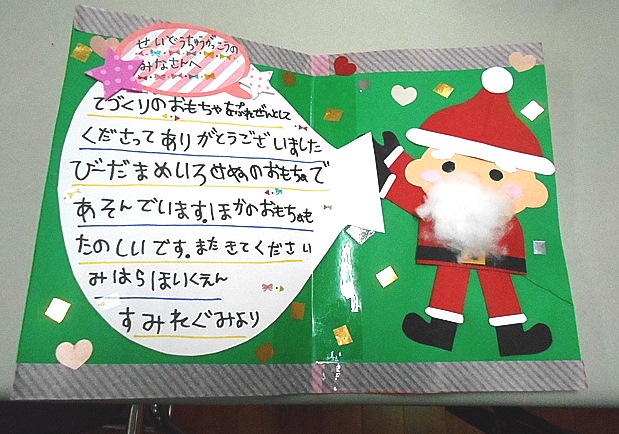 せいどうちゅうがっこうの
みなさんへ
てづくりのおもちゃをぷれぜんとして
くださってありがとうございました
びーだまめいろ のおもちゃで
あそんでいます。ほかのおもちゃも
たのしいです。またきてください
みはらほいくえん
すみれぐみより